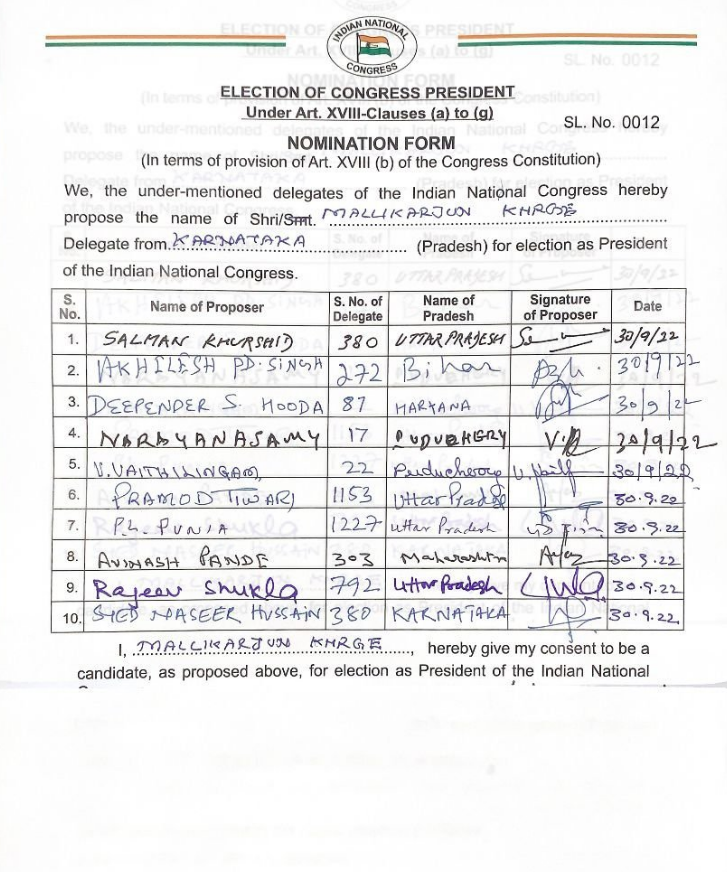 INDIAN NATIONAL
CONGRESS
ELECTION OF CONGRESS PRESIDENT
Under Art. XVIII-Clauses (a) to (g)
SL. No. 0012
NOMINATION FORM
(In terms of provision of Art. XVIII (b) of the Congress Constitution)
We, the under-mentioned delegates of the Indian National Congress hereby
propose the name of Shri/Smt. MALLIKARJUN KHRGE
Delegate from KARNATAKA (Pradesh) for election as President
of the Indian National Congress.
S. No. Name of Proposer S. No. of Delegate Name of Pradesh Signature of Proposer Date
1. SALMAN KHURSHID 380 UTTAR PRADESH 30/9/22
2. AKHILESH PD. SINGH 272 Bihar 30/9/22
3. DEEPENDER S. HOODA 87 HARYANA 30/9/22
4. NARAYANASAMY 17 PUDUCHERY 30/9/22
5. V. VAITHILINGAM 22 Puducherry 30/9/22
6. PRAMOD TIWARI 1153 Uttar Pradesh 30.9.22
7. P.L. PUNIA 1227 Uttar Pradesh 30.9.22
8. AVINASH PANDE 303 Maharashtra 30.9.22
9. Rajeev Shukla 792 Uttar Pradesh 30.9.22
10. SYED NASEER HUSSAIN 380 KARNATAKA 30.9.22
I, MALLIKARJUN KHRGE, hereby give my consent to be a
candidate, as proposed above, for election as President of the Indian National